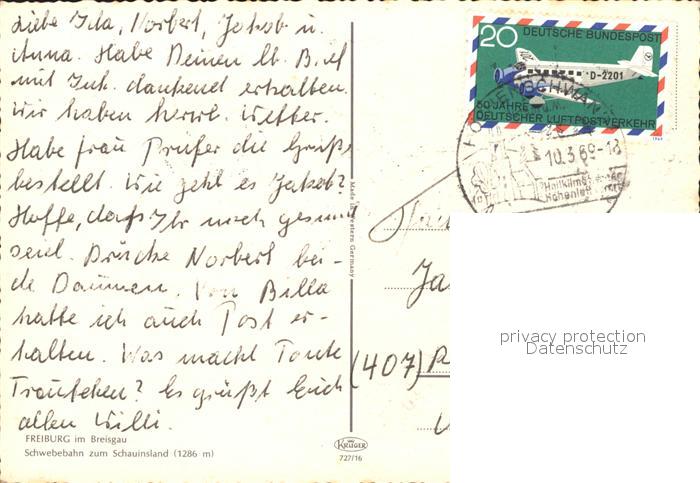 Liebe Ida, Norbert, Jakob u.
Anna. Habe Deinen lb. Brief
mit Inh. dankend erhalten.
Wir haben herrl. Wetter.
Habe Frau Prüfer die Grüße
bestellt. Wie geht es Jakob?
Hoffe, daß Ihr noch gesund
seid. Drücke Norbert bei-
de Daumen. Von Billa
hatte ich auch Post er-
halten. Was macht Tante
Trautchen? Es grüßt Euch
allen Willi.
FREIBURG im Breisgau
Schwebebahn zum Schauinsland (1286 m)
Made in Western Germany
KRÜGER
727/16
20
DEUTSCHE BUNDESPOST
D-2201
50 JAHRE
DEUTSCHER LUFTPOSTVERKEHR
1969
10.3.69-18
Heilklima
Höhenluft
(407) R
privacy protection
Datenschutz